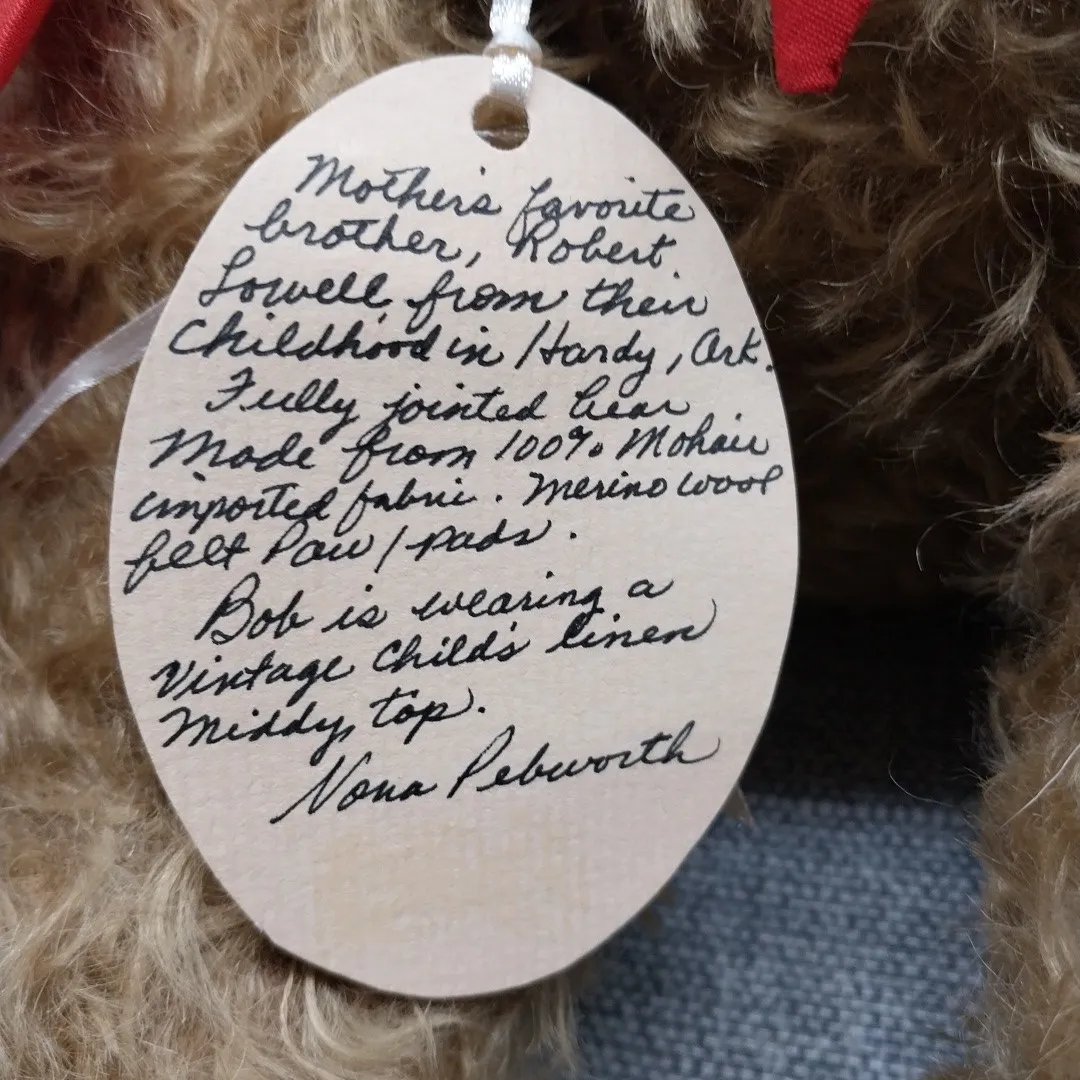 Mother's favorite
brother, Robert
Lowell, from their
Childhood in Hardy, Ark.
Fully jointed bear
Made from 100% Mohair
imported fabric. Merino wool
felt Paw/pads.
Bob is wearing a
Vintage Child's linen
Middy top.
Nona Pebworth